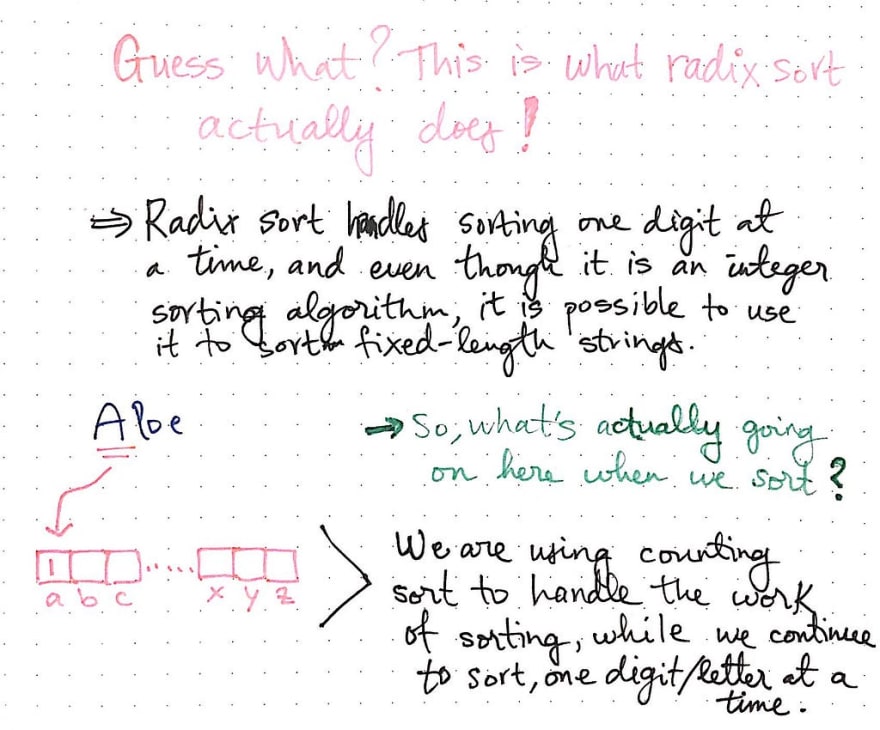 Guess what? This is what radix sort
actually does!
⇒ Radix sort handles sorting one digit at
a time, and even though it is an integer
sorting algorithm, it is possible to use
it to sort fixed-length strings.
Aloe
→ So, what's actually going
on here when we sort?
1 ...... 
a b c x y z
We are using counting
sort to handle the work
of sorting, while we continue
to sort, one digit/letter at a
time.